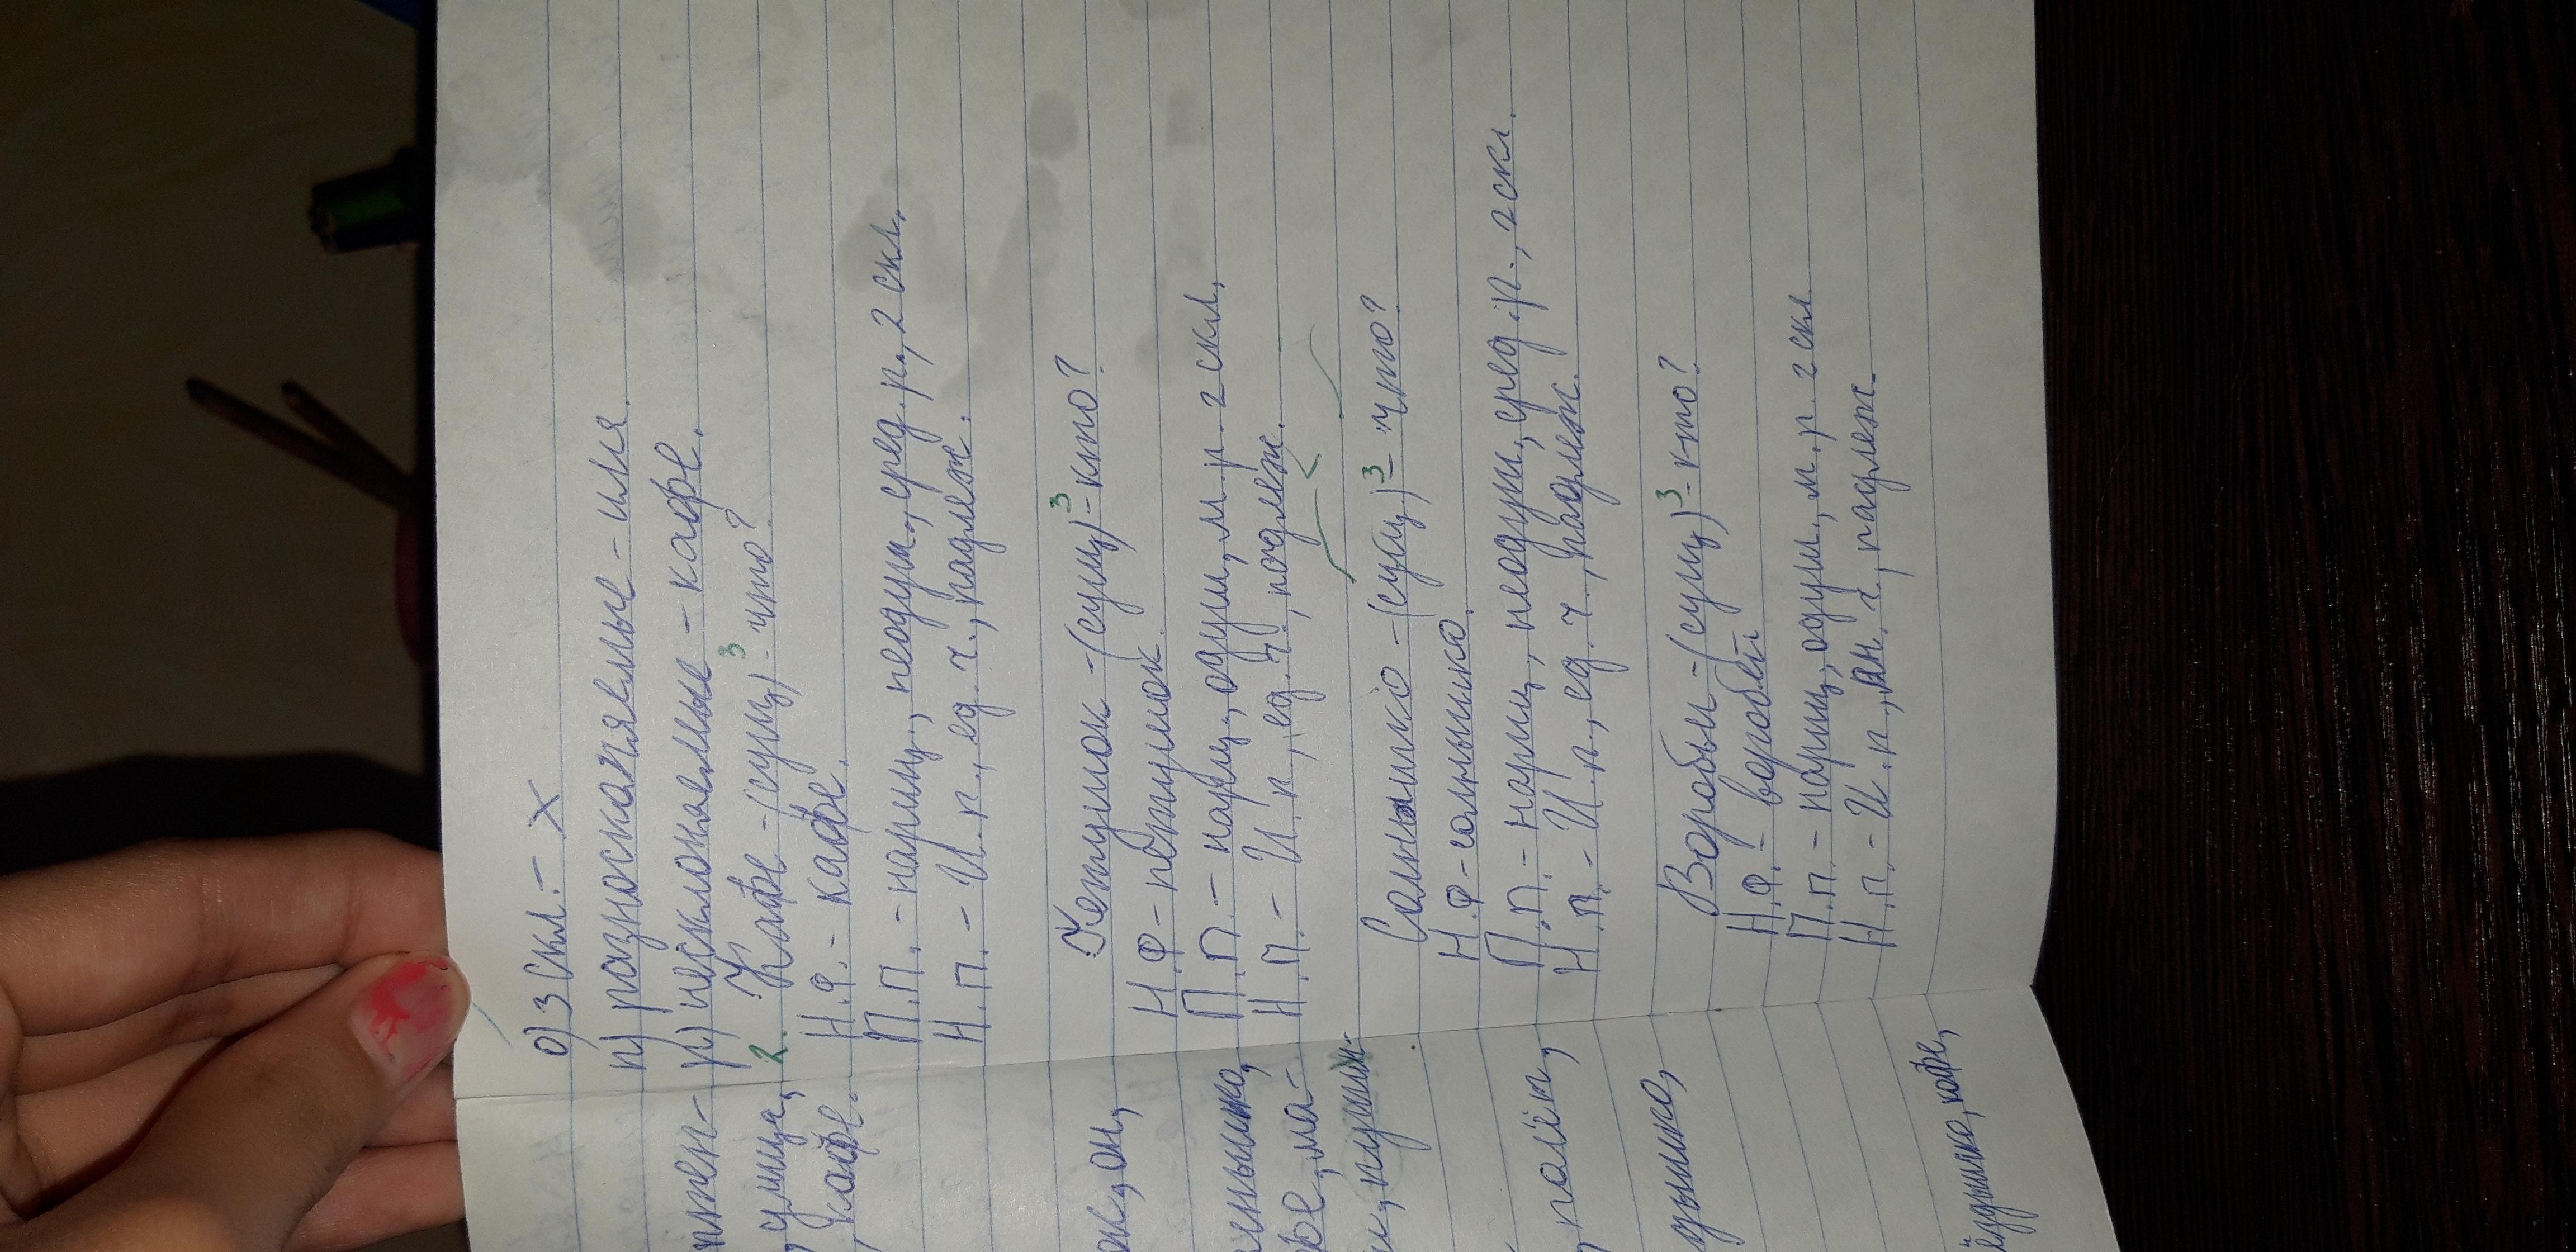 о) 3 скл. - X
п) разноскланяемые - имя.
р) несклоняемые - кафе.
2. Кафе - (сущ)³ - что?
Н.Ф. - кафе.
П.П. - нариц., неодуш., сред. р., 2 скл.
Н.П. - И.п., ед.ч., подлеж.
Петушок - (сущ)³ - кто?
Н.Ф - петушок.
П.П. - нариц., одуш., м.р. 2 скл.
Н.П. - И.п., ед.ч., подлеж.
Солнышко - (сущ)³ - что?
Н.Ф - солнышко.
П.П. - нариц., неодуш., сред.р., 2скл.
Н.П. - И.п., ед.ч., подлеж.
Воробьи - (сущ)³ - кто?
Н.Ф. - воробей
П.П. - нариц., одуш., м.р. 2 скл.
Н.П. - И.п., мн.ч., подлеж.
улица,
кафе.
ок, он,
полёт,
кофе,